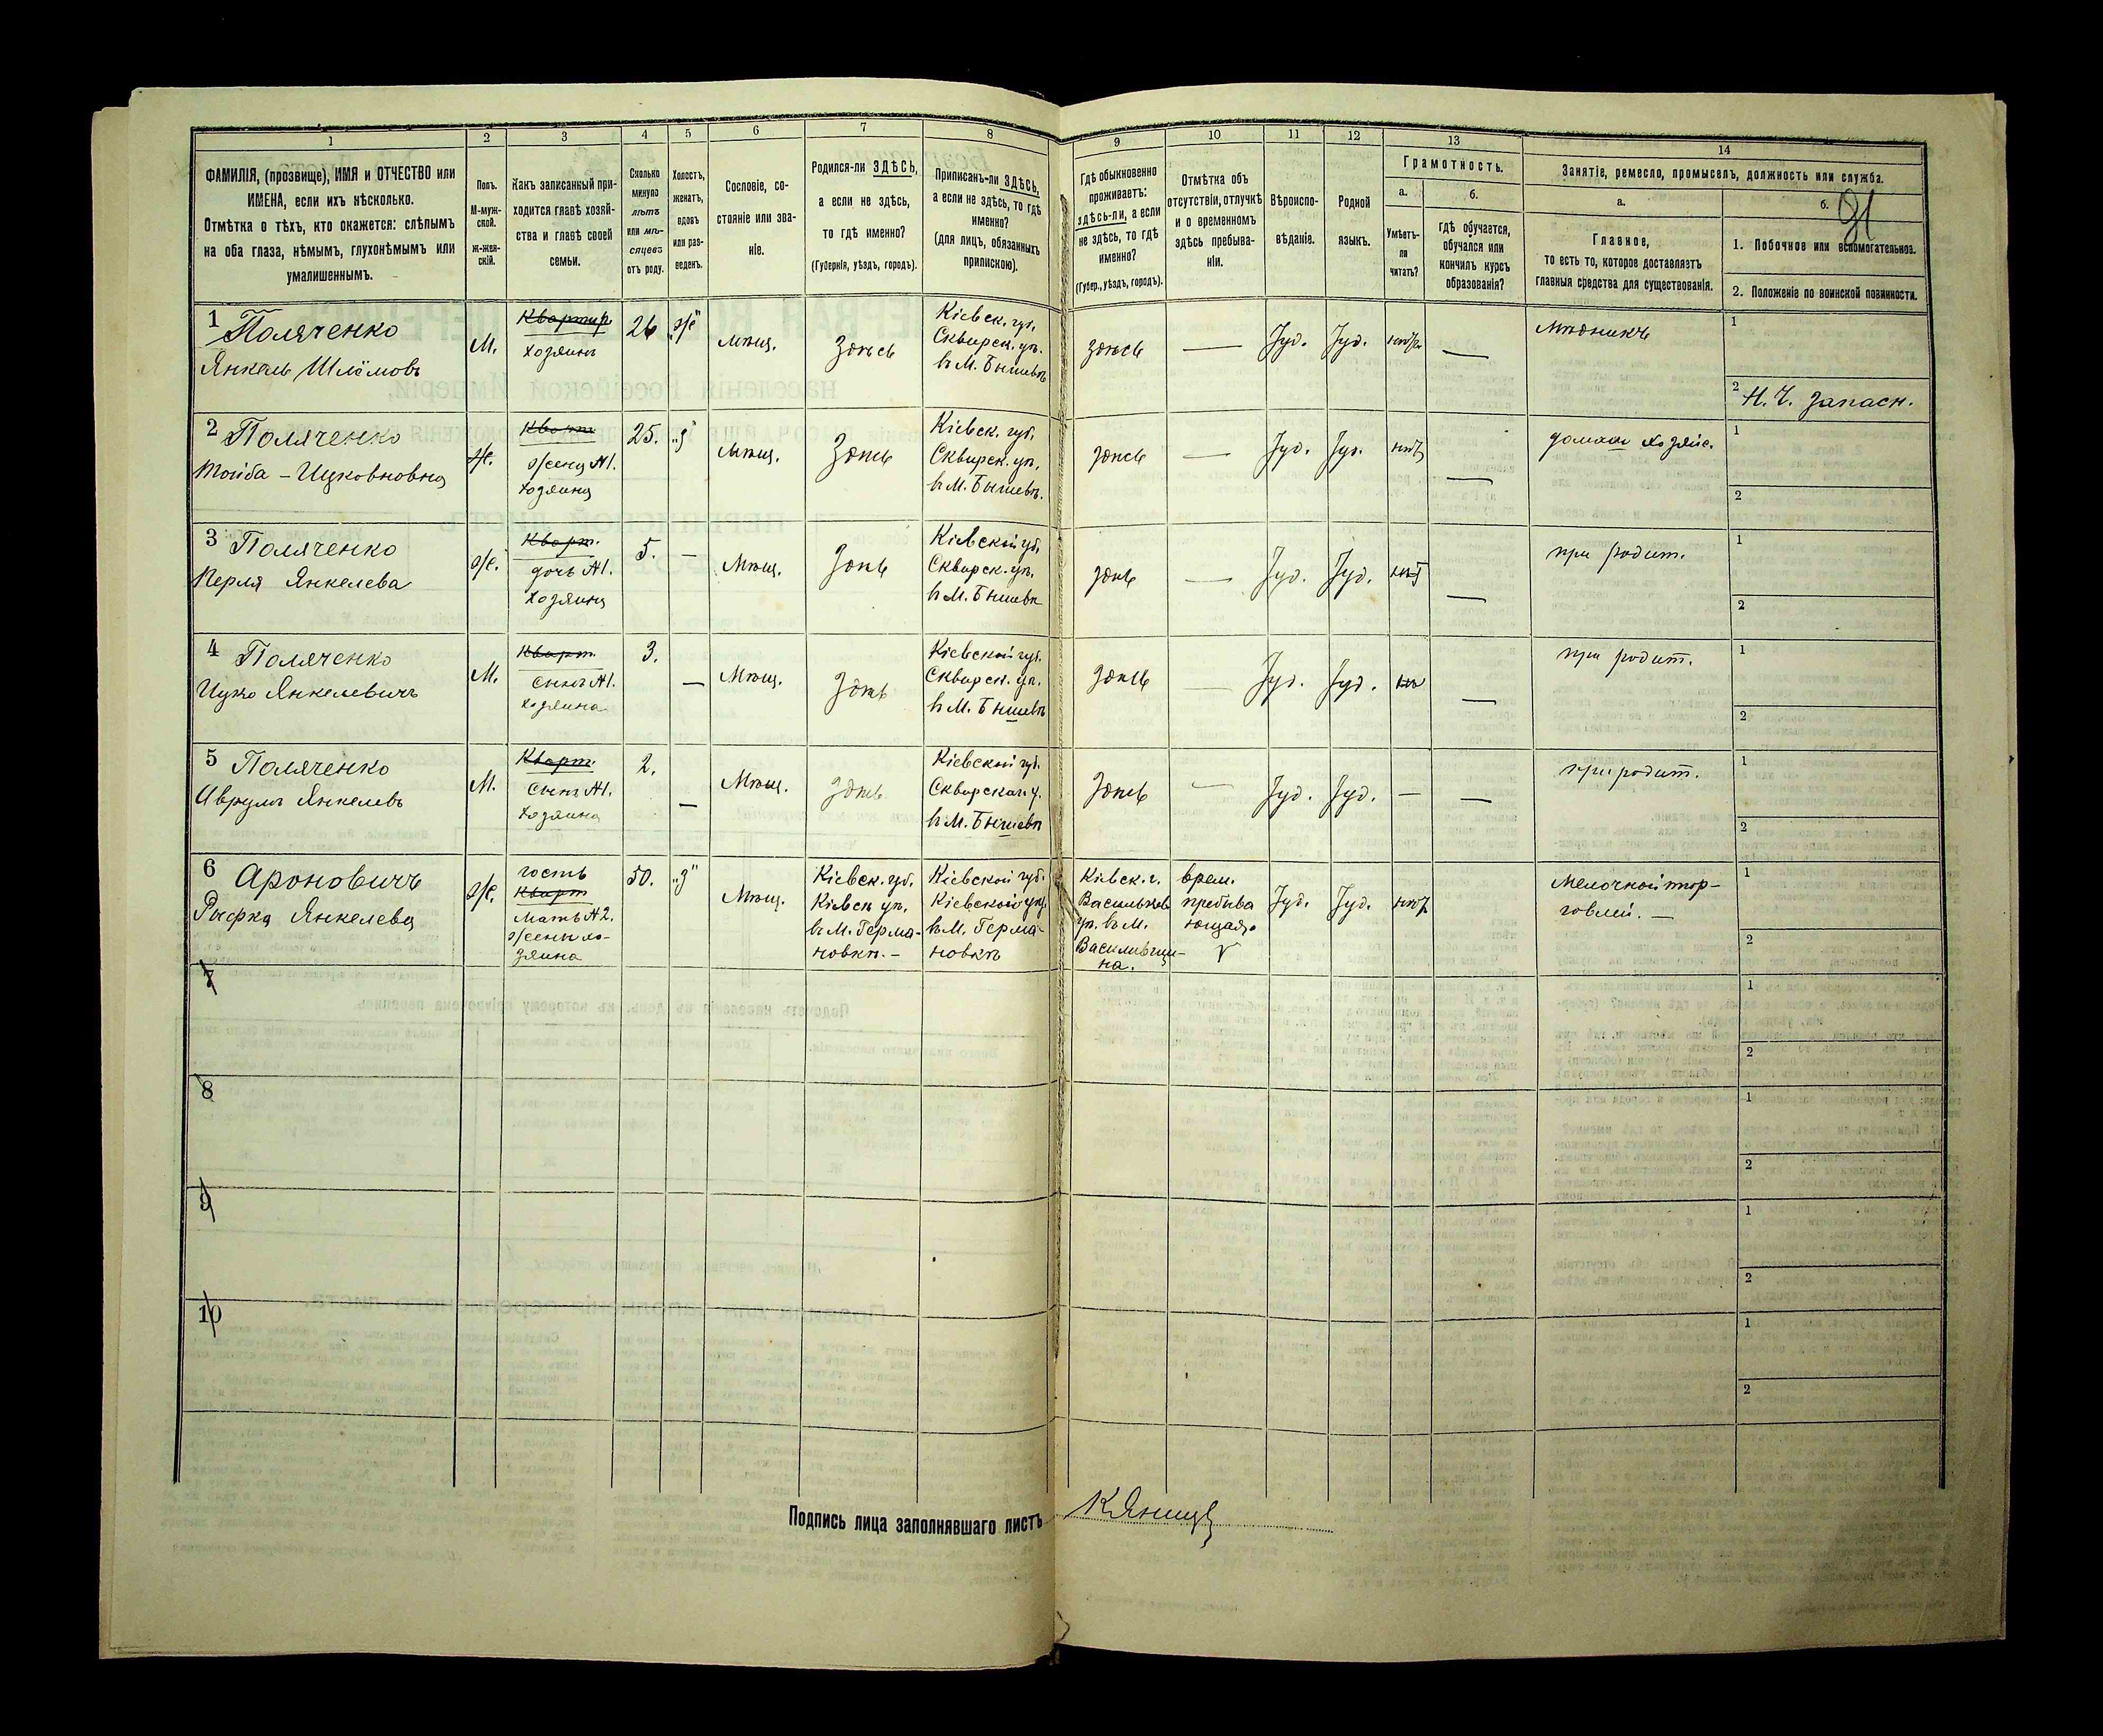 1
2
3
4
5
6
7
8
9
10
11
12
13
14
ФАМИЛІЯ, (прозвище), ИМЯ и ОТЧЕСТВО или
ИМЕНА, если ихъ нѣсколько.
Отмѣтка о тѣхъ, кто окажется: слѣпымъ
на оба глаза, нѣмымъ, глухонѣмымъ или
умалишеннымъ.
Полъ.
М-муж-
ской.
ж-жен-
скій.
Какъ записанный при-
ходится главѣ хозяй-
ства и главѣ своей
семьи.
Сколько
минуло
лѣтъ
или мѣ-
сяцевъ
отъ роду.
Холостъ,
женатъ,
вдовъ
или раз-
веденъ.
Сословіе, со-
стояніе или зва-
ніе.
Родился-ли ЗДѢСЬ,
а если не здѣсь,
то гдѣ именно?
(Губернія, уѣздъ, городъ).
Приписанъ-ли ЗДѢСЬ,
а если не здѣсь, то гдѣ
именно?
(для лицъ, обязанныхъ
припискою).
Гдѣ обыкновенно
проживаетъ:
здѣсь-ли, а если
не здѣсь, то гдѣ
именно?
(Губер., уѣздъ, городъ).
Отмѣтка объ
отсутствіи, отлучкѣ
и о временномъ
здѣсь пребыва-
ніи.
Вѣроиспо-
вѣданіе.
Родной
языкъ.
Грамотность.
а.
Умѣетъ-
ли
читать?
б.
гдѣ обучается,
обучался или
кончилъ курсъ
образованія?
Занятіе, ремесло, промыселъ, должность или служба.
а.
Главное,
то есть то, которое доставляетъ
главныя средства для существованія.
б.
1. Побочное или вспомогательное.
2. Положеніе по воинской повинности.
1 Поляченко
Янкель Шлёмовъ
М.
Квартир
хозяинъ
26
"ж"
Мѣщ.
Здѣсь
Кіевск. губ.
Сквирск. уѣ.
въ М. Бышевѣ
здѣсь
—
Іуд.
Іуд.
—
мѣдникъ
1
2 Н. Ч. запасн.
2 Поляченко
Тойба - Ицковновна
ж.
Кварт
жена №1.
хозяина
25.
"з"
Мѣщ.
Здѣсь
Кіевск. губ.
Сквирск. уѣ.
въ М. Бышевѣ.
здѣсь
—
Іуд.
Іуд.
нѣтъ
—
домаш хозяйс.
1
2
3 Поляченко
Перля Янкелева
ж.
Кварт.
дочь №1.
хозяина
5.
—
Мѣщ.
Здѣсь
Кіевской губ.
Сквирск. уѣ.
въ М. Бышевѣ
здѣсь
—
Іуд.
Іуд.
нѣтъ
—
при родит.
1
2
4 Поляченко
Ицко Янкелевичъ
М.
Кварт.
сынъ №1.
хозяина
3.
—
Мѣщ.
Здѣсь
Кіевской губ.
Сквирск. уѣ.
въ М. Бышевѣ
здѣсь
—
Іуд.
Іуд.
—
при родит.
1
2
5 Поляченко
Аврумъ Янкелевъ
М.
Кварт.
Сынъ №1.
хозяина
2.
—
Мѣщ.
Здѣсь
Кіевской губ.
Сквирскаг. у.
въ М. Бышевѣ
Здѣсь
—
Іуд.
Іуд.
—
—
при родит.
1
2
6 Ароновичъ
Рыфка Янкелева
ж.
гость
Кварт
Мать №2.
жены хо-
зяина
50.
"з"
Мѣщ.
Кіевск. губ.
Кіевск уѣ.
въ М. Герма-
новкѣ.-
Кіевской губ.
Кіевского уѣз.
въ М. Герма-
новкѣ
Кіевск. г.
Васильков
уѣ. въ М.
врем.
пребыва
ющая.
V
Іуд.
Іуд.
нѣтъ
Мелочной тор-
говлей. —
1
2
7
1
2
8
1
2
9
1
2
10
1
2
Подпись лица заполнявшаго листъ